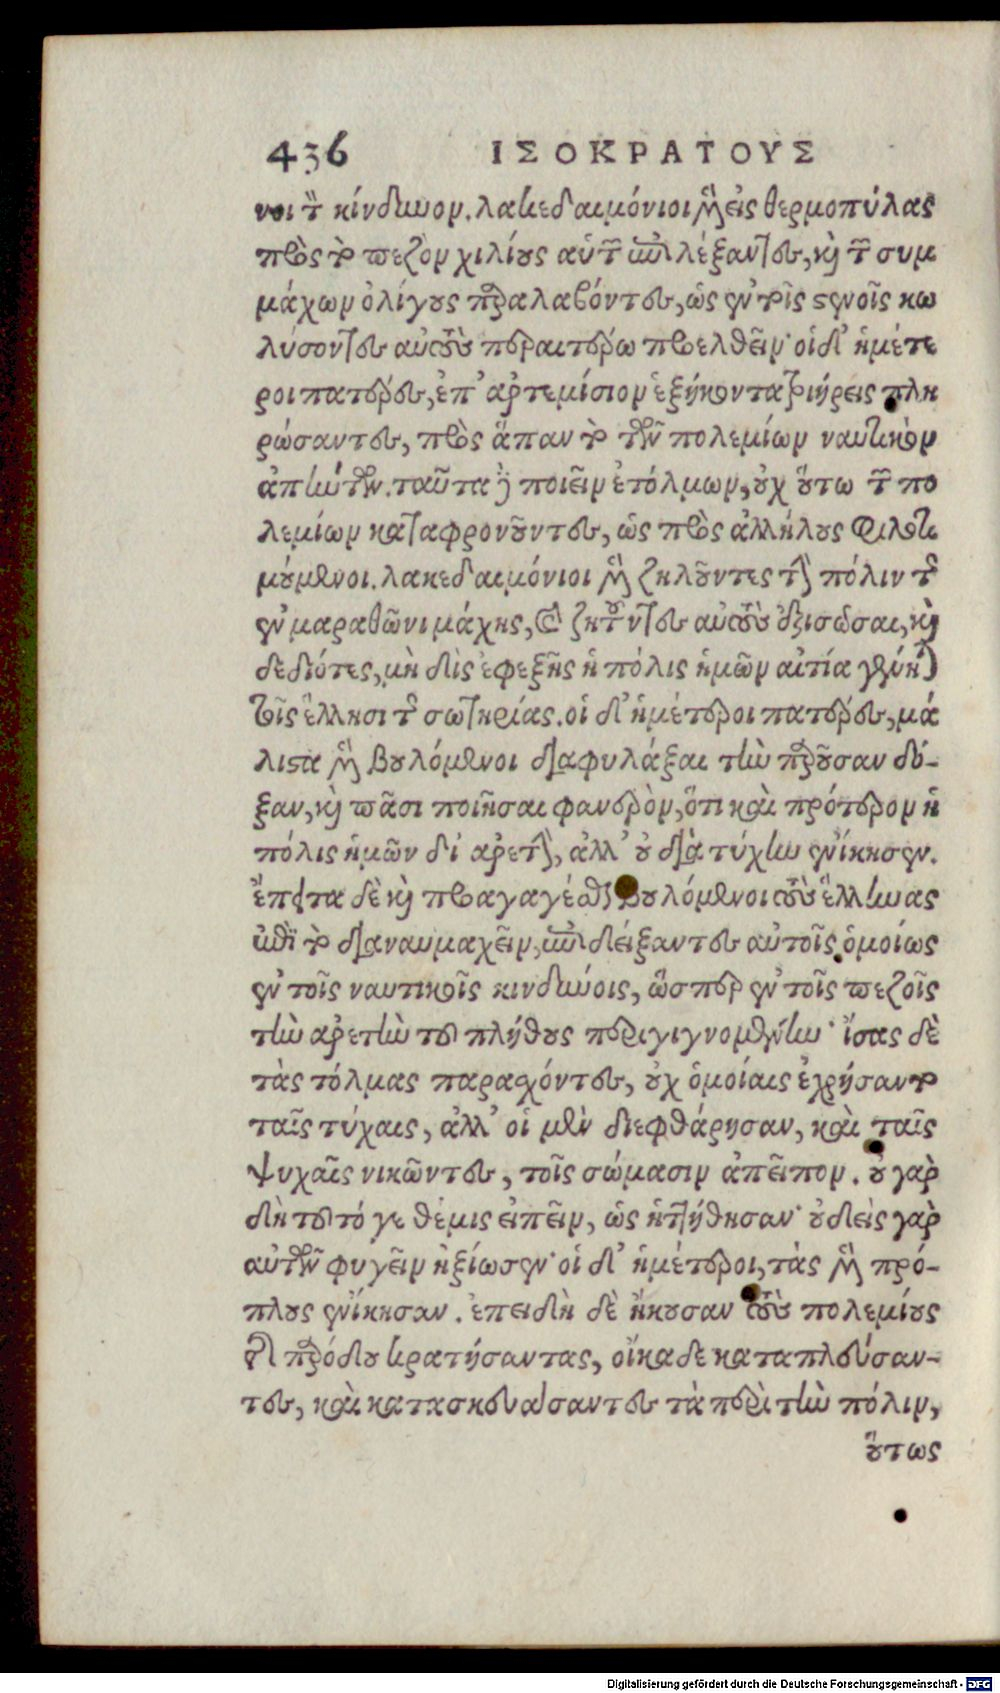 436 ΙΣΟΚΡΑΤΟΥΣ
νοι τὸν κίνδυνον. λακεδαιμόνιοι μὲν εἰς θερμοπύλας
πρὸς τὸ πεζὸν χιλίους αὑτῶν ἐπιλέξαντες, καὶ τῶν συμ
μάχων ὀλίγους παραλαβόντες, ὡς ἐν τοῖς στενοῖς κω
λύσοντες αὐτοὺς περαιτέρω προελθεῖν· οἱ δ' ἡμέτε
ροι πατέρες, ἐπ' ἀρτεμίσιον ἑξήκοντα τριήρεις πλη
ρώσαντες, πρὸς ἅπαν τὸ τῶν πολεμίων ναυτικὸν
ἀπήντων. ταῦτα δὲ ποιεῖν ἐτόλμων, οὐχ οὕτω τῶν πο
λεμίων καταφρονοῦντες, ὡς πρὸς ἀλλήλους φιλοτι
μούμενοι. λακεδαιμόνιοι μὲν ζηλοῦντες τὴν πόλιν τῆς
ἐν μαραθῶνι μάχης, καὶ ζητοῦντες αὐτοὺς ἐξισῶσαι, καὶ
δεδιότες, μὴ δὶς ἐφεξῆς ἡ πόλις ἡμῶν αἰτία γένηται
τοῖς ἕλλησι τῆς σωτηρίας. οἱ δ' ἡμέτεροι πατέρες, μά
λιστα μὲν βουλόμενοι διαφυλάξαι τὴν παροῦσαν δό-
ξαν, καὶ πᾶσι ποιῆσαι φανερὸν, ὅτι καὶ πρότερον ἡ
πόλις ἡμῶν δι' ἀρετὴν, ἀλλ' οὐ διὰ τύχην ἐνίκησεν.
ἔπειτα δὲ καὶ προαγαγέσθαι βουλόμενοι τοὺς ἕλληνας
ἐπὶ τὸ διαναυμαχεῖν, ἐπιδείξαντες αὐτοῖς ὁμοίως
ἐν τοῖς ναυτικοῖς κινδύνοις, ὥσπερ ἐν τοῖς πεζοῖς
τὴν ἀρετὴν τοῦ πλήθους περιγιγνομένην· ἴσας δὲ
τὰς τόλμας παρασχόντες, οὐχ ὁμοίαις ἐχρήσαντο
ταῖς τύχαις, ἀλλ' οἱ μὲν διεφθάρησαν, καὶ ταῖς
ψυχαῖς νικῶντες, τοῖς σώμασιν ἀπεῖπον. οὐ γὰρ
δὴ τοῦτό γε θέμις εἰπεῖν, ὡς ἡττήθησαν· οὐδεὶς γὰρ
αὐτῶν φυγεῖν ἠξίωσεν· οἱ δ' ἡμέτεροι, τὰς μὲν πρό-
πλους ἐνίκησαν. ἐπειδὴ δὲ ἤκουσαν τοὺς πολεμίους
τῆς παρόδου κρατήσαντας, οἴκαδε καταπλεύσαν-
τες, καὶ κατασκευάσαντες τὰ περὶ τὴν πόλιν,
οὕτως
Digitalisierung gefördert durch die Deutsche Forschungsgemeinschaft - DFG